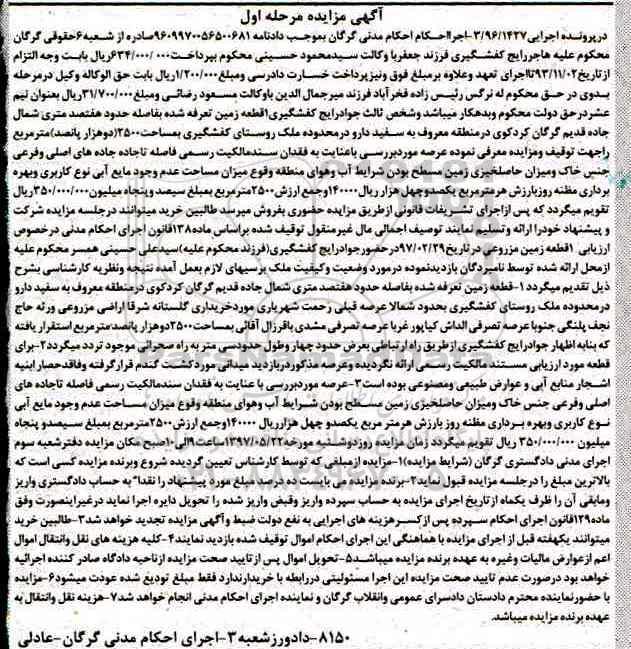 آگهی مزایده مرحله اول
درپرونده اجرایی۳/۹۶/۱۴۲۷-اجرااحکام احکام مدنی گرگان بموجب دادنامه ۹۶۰۹۹۷۰۰۵۶۵۰۰۶۸۱صادره از شعبه۶حقوقی گرگان
محکوم علیه هاجررایج کفشگیری فرزند جعفربا وکالت سیدمحمود حسینی محکوم بپرداخت۶۳۴/۰۰۰/۰۰۰ریال بابت وجه التزام
ازتاریخ۹۳/۱۱/۰۲تااجرای تعهد وعلاوه برمبلغ فوق ونیزپرداخت خسارت دادرسی ومبلغ۱/۲۰۰/۰۰۰ریال بابت حق الوکاله وکیل درمرحله
بدوی در حق محکوم له نرگس رئیس زاده فخرآباد فرزند میرجمال الدین باوکالت مسعود رضائی ومبلغ۳۱/۷۰۰/۰۰۰ریال بعنوان نیم
عشردرحق دولت محکوم وبدهکار میباشد وشخص ثالث جوادرایج کفشگیری۱قطعه زمین تعرفه شده بفاصله حدود هفتصد متری شمال
جاده قدیم گرگان کردکوی درمنطقه معروف به سفید دارو درمحدوده ملک روستای کفشگیری بمساحت۲۵۰۰(دوهزار پانصد)مترمربع
راجهت توقیف ومزایده معرفی نموده عرصه موردبررسی باعنایت به فقدان سندمالکیت رسمی فاصله تاجاده جاده های اصلی وفرعی
جنس خاک ومیزان حاصلخیزی زمین مسطح بودن شرایط آب وهوای منطقه وقوع میزان مساحت عدم وجود مایع آبی نوع کاربری وبهره
برداری مظنه روزبارزش هرمترمربع یکصدوچهل هزار ریال۱۴۰۰۰۰وجمع ارزش۲۵۰۰مترمربع بمبلغ سیصد وپنجاه میلیون۳۵۰/۰۰۰/۰۰۰ریال
تقویم میگردد که پس ازاجرای تشریفات قانونی ازطریق مزایده حضوری بفروش میرسد طالبین خرید میتوانند درجلسه مزایده شرکت
و پیشنهاد خودرا ارائه وتسلیم نمایند توصیف اجمالی مال غیرمنقول توقیف شده براساس ماده۱۳۸قانون اجرای احکام مدنی درخصوص
ارزیابی ۱قطعه زمین مزروعی در تاریخ۹۷/۰۲/۲۹درحضورجوادرایج کفشگیری(فرزند محکوم علیه)سیدعلی حسینی همسر محکوم علیه
ازمحل ارائه شده توسط نامبردگان بازدیدنموده درمورد وضعیت وکیفیت ملک برسیهای لازم بعمل آمده نتیجه ونظریه کارشناسی بشرح
ذیل تقدیم میگردد ۱-قطعه زمین تعرفه شده بفاصله حدود هفتصد متری شمال جاده قدیم گرگان کردکوی درمنطقه معروف به سفید دارو
درمحدوده ملک روستای کفشگیری بحدود شمالا عرصه قبلی رحمت شهریاری موردخریداری گلستانه شرقا اراضی مزروعی ورثه حاج
نجف پلنگی جنوبا عرصه تصرفی الداش کیاپور غربا عرصه تصرفی مشدی باقرزال آقائی بمساحت۲۵۰۰دوهزار پانصدمترمربع استقرار یافته
که بنابه اظهار جوادرایج کفشگیری ازطریق راه ارتباطی بعرض حدود چهار وطول حدودسی متر به راه صحرائی موجود تردد میگردد۲-برای
قطعه مورد ارزیابی مستند مالکیت رسمی ارائه نگردیده وعرصه مذکوردربازدید میدانی موردکشت گندم قرارگرفته وفاقدحصار ابنیه
اشجار منابع آبی و عوارض طبیعی ومصنوعی بوده است۳-عرصه موردبررسی با عنایت به فقدان سندمالکیت رسمی فاصله تاجاده های
اصلی وفرعی جنس خاک ومیزان حاصلخیزی زمین مسطح بودن شرایط آب وهوای منطقه وقوع میزان مساحت عدم وجود مایع آبی
نوع کاربری وبهره برداری مظنه روز بارزش هرمتر مربع یکصدو چهل هزارریال ۱۴۰۰۰۰وجمع ارزش۲۵۰۰مترمربع بمبلغ سیصدو پنجاه
میلیون ۳۵۰/۰۰۰/۰۰۰ ریال تقویم میگردد زمان مزایده روزدوشنبه مورخه۱۳۹۷/۰۵/۲۲ساعت۹الی۱۰صبح مکان مزایده دفترشعبه سوم
اجرای مدنی دادگستری گرگان (شرایط مزایده)۱-مزایده ازمبلغی که توسط کارشناس تعیین گردیده شروع وبرنده مزایده کسی است که
بالاترین مبلغ را درجلسه مزایده قبول نماید۲-برنده مزایده می بایست ده درصد مبلغ مورد پیشنهاد را نقدا" به حساب دادگستری واریز
ومابقی آن را ظرف یکماه ازتاریخ اجرای مزایده به حساب سپرده واریز وقبض واریز شده را تحویل دایره اجرا نماید درغیراینصورت وفق
ماده۱۲۹قانون اجرای احکام سپرده پس ازکسرهزینه های اجرایی به نفع دولت ضبط وآگهی مزایده تجدید خواهد شد۳-طالبین خرید
میتوانند یکهفته قبل از اجرای مزایده با هماهنگی این اجرای احکام اموال توقیف شده بازدید نمایند۴-کلیه هزینه های نقل وانتقال اموال
اعم ازعوارض مالیات وغیره به عهده برنده مزایده میباشد۵-تحویل اموال پس ازتایید صحت مزایده ازناحیه دادگاه صادر کننده اجرائیه
خواهد بود درصورت عدم تایید صحت مزایده این اجرا مسئولیتی دررابطه با خریدارندارد فقط مبلغ تودیع شده عودت میشود۶-مزایده
با حضورنماینده محترم دادستان دادسرای عمومی وانقلاب گرگان و نماینده اجرای احکام مدنی انجام خواهد شد۷-هزینه نقل وانتقال به
عهده برنده مزایده میباشد.
۸۱۵۰-دادورزشعبه۳-اجرای احکام مدنی گرگان-عادلی